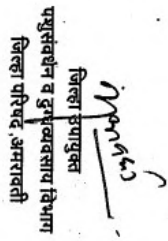 जिल्हा उपायुक्त
पशुसंवर्धन व दुग्धव्यवसाय विभाग
जिल्हा परिषद,अमरावती